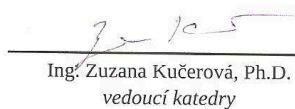 Ing. Zuzana Kučerová, Ph.D.
vedoucí katedry